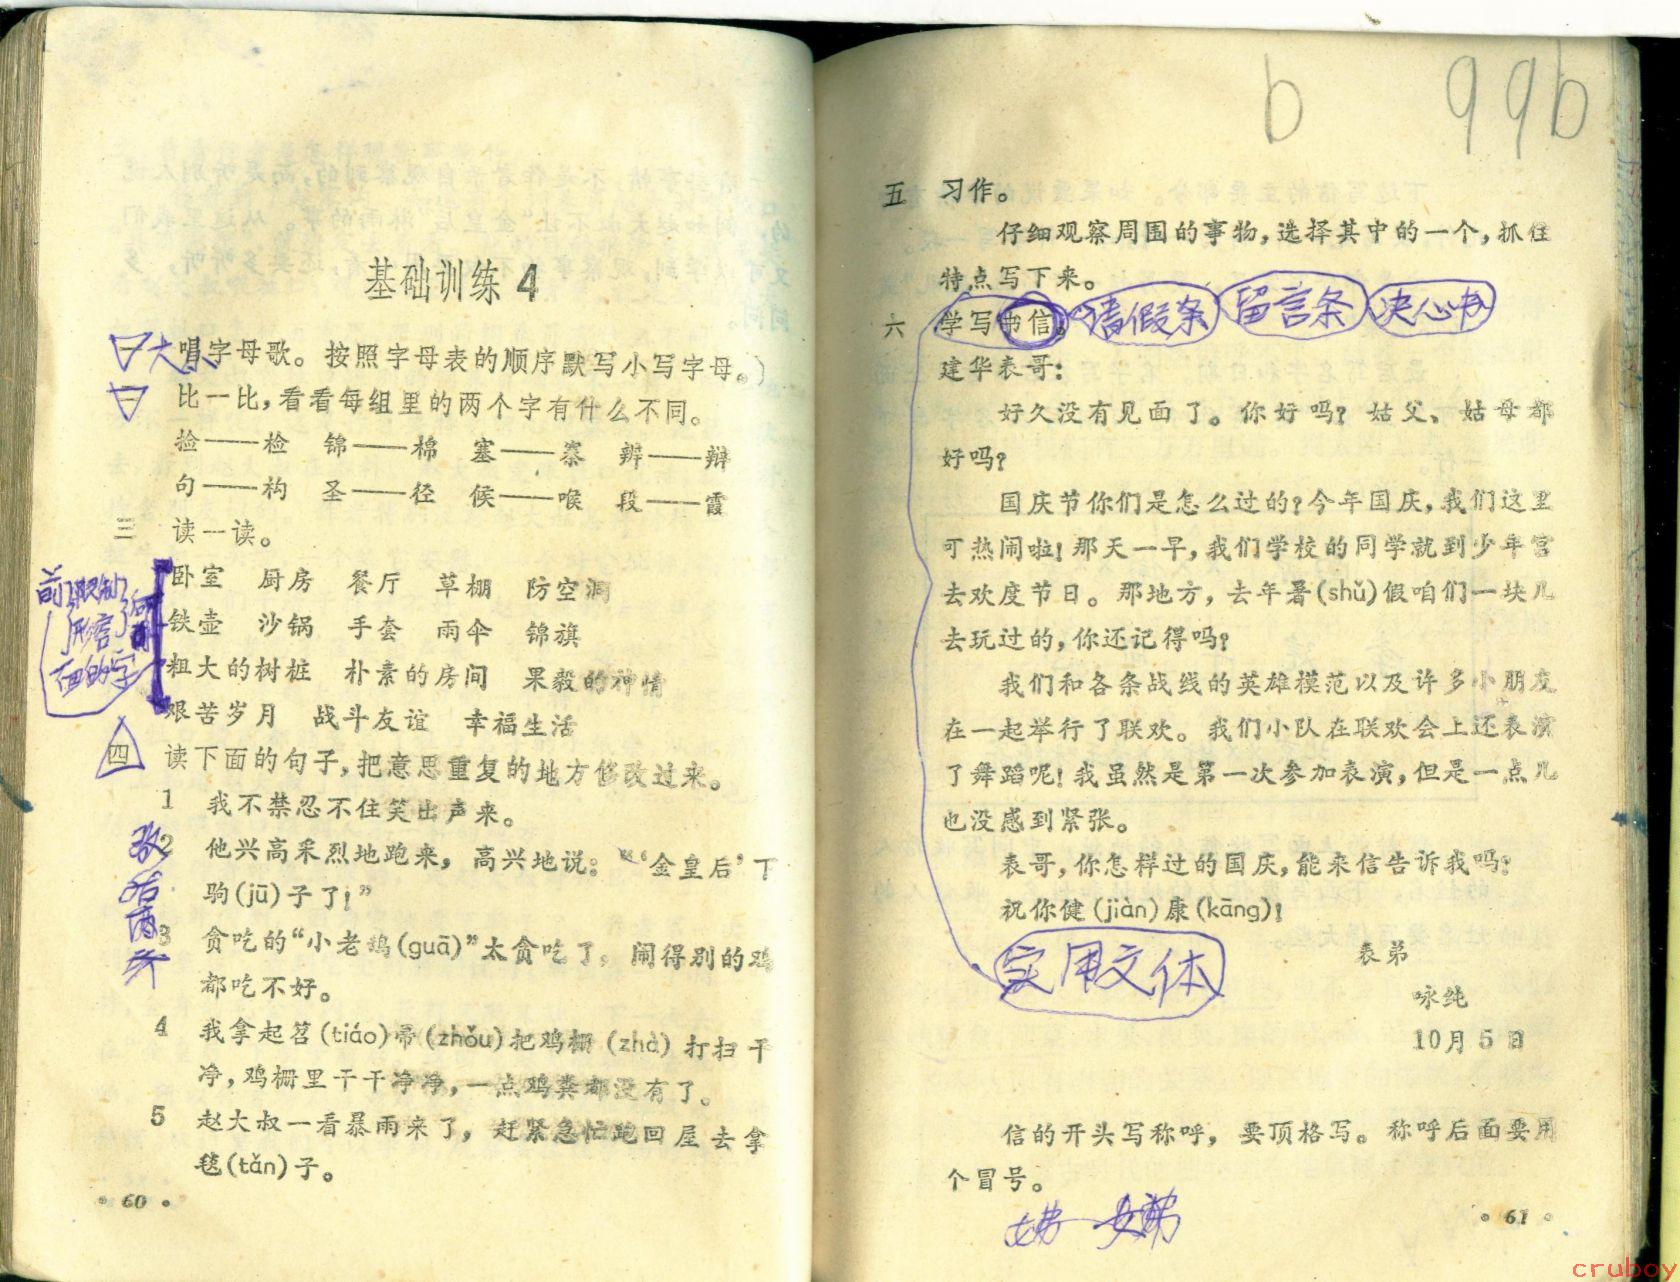 基础训练4
一 大唱字母歌。按照字母表的顺序默写小写字母。)
二 比一比，看看每组里的两个字有什么不同。
捡——检 锦——棉 塞——寨 辨——辩
句——构 圣——径 候——喉 段——霞
三 读一读。
卧室 厨房 餐厅 草棚 防空洞
铁壶 沙锅 手套 雨伞 锦旗
粗大的树桩 朴素的房间 果毅的神情
艰苦岁月 战斗友谊 幸福生活
前 限制 形容 后面的字
四 读下面的句子，把意思重复的地方修改过来。
1 我不禁忍不住笑出声来。
2 他兴高采烈地跑来，高兴地说：“‘金皇后’下
驹(jū)子了！”
3 贪吃的“小老鸹(guā)”太贪吃了，闹得别的鸡
都吃不好。
4 我拿起笤(tiáo)帚(zhǒu)把鸡栅(zhà)打扫干
净，鸡栅里干干净净，一点鸡粪都没有了。
5 赵大叔一看暴雨来了，赶紧急忙跑回屋去拿
毯(tǎn)子。
·60·
b 99b
五 习作。
仔细观察周围的事物，选择其中的一个，抓住
特点写下来。
六 学写书信。 请假条 留言条 决心书
建华表哥：
好久没有见面了。你好吗？姑父、姑母都
好吗？
国庆节你们是怎么过的？今年国庆，我们这里
可热闹啦！那天一早，我们学校的同学就到少年宫
去欢度节日。那地方，去年暑(shǔ)假咱们一块儿
去玩过的，你还记得吗？
我们和各条战线的英雄模范以及许多小朋友
在一起举行了联欢。我们小队在联欢会上还表演
了舞蹈呢！我虽然是第一次参加表演，但是一点儿
也没感到紧张。
表哥，你怎样过的国庆，能来信告诉我吗？
祝你健(jiàn)康(kāng)！
实用文体
表弟
咏纯
10月5日
信的开头写称呼，要顶格写。称呼后面要用
个冒号。
·61·
cruboy